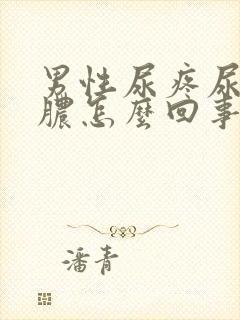 男性尿疼尿
膿怎麼回事
潘青